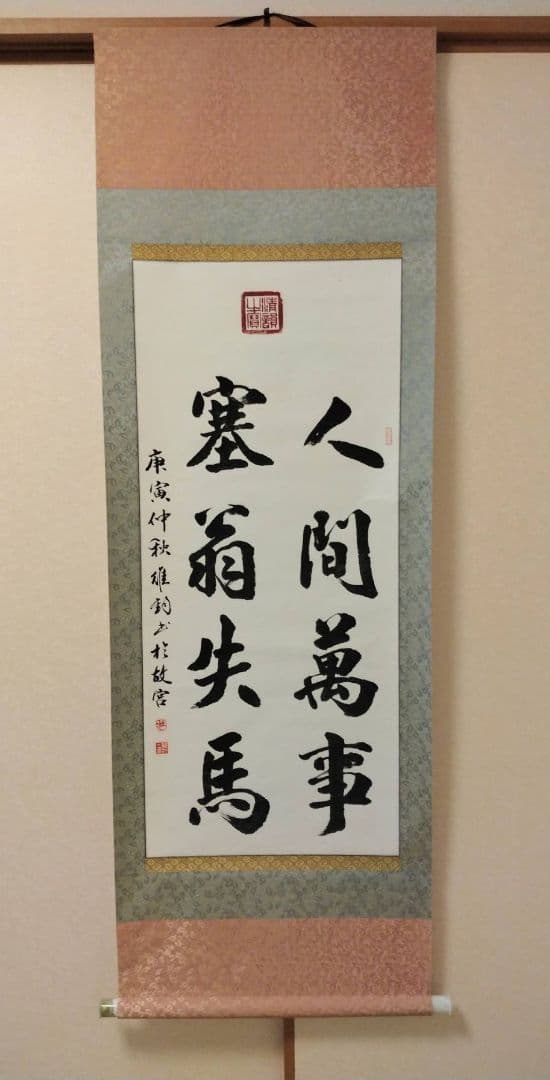 人間萬事
塞翁失馬
庚寅仲秋雄鈞书於故宮